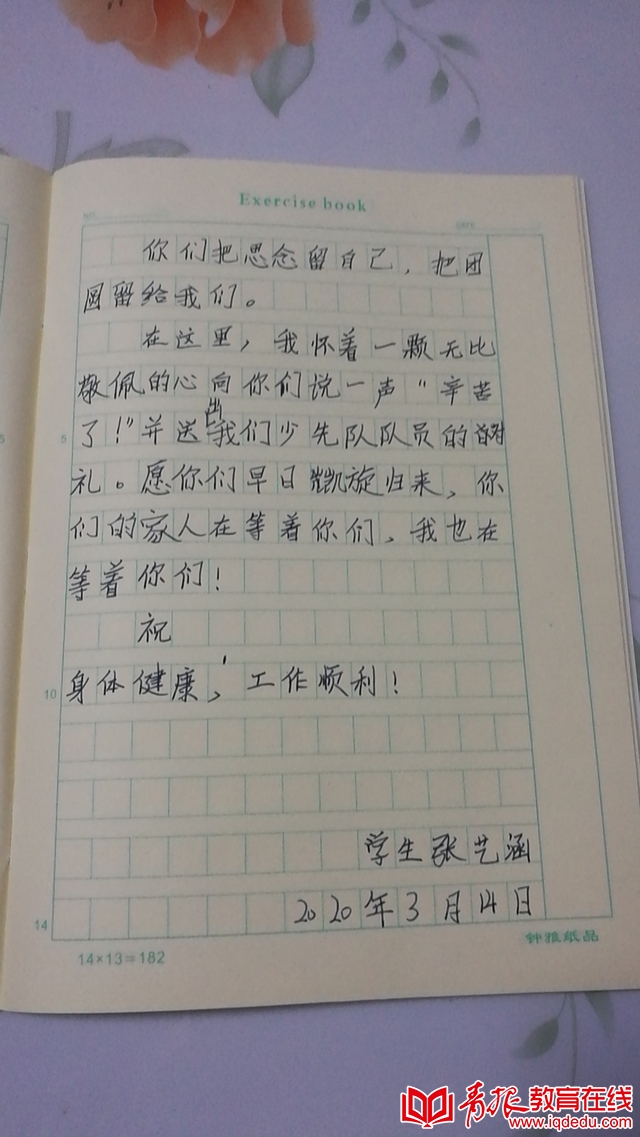 Exercise book
NO.
DATE
你们把思念留自己，把团
圆留给我们。
在这里，我怀着一颗无比
敬佩的心向你们说一声“辛苦
5
5
了！”并送出我们少先队队员的
礼。愿你们早日凯旋归来，你
们的家人在等着你们、我也在
等着你们！
祝
10
身体健康，工作顺利！
学生张艺涵
14
2020年3月14日
14×13=182
钟雅纸品
青报教育在线
www.iqdedu.com